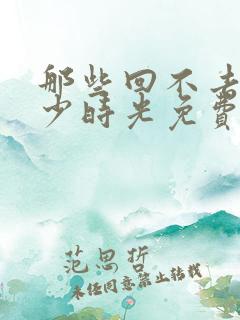 那些回不去
少時光免費
范思哲
未经同意禁止转载